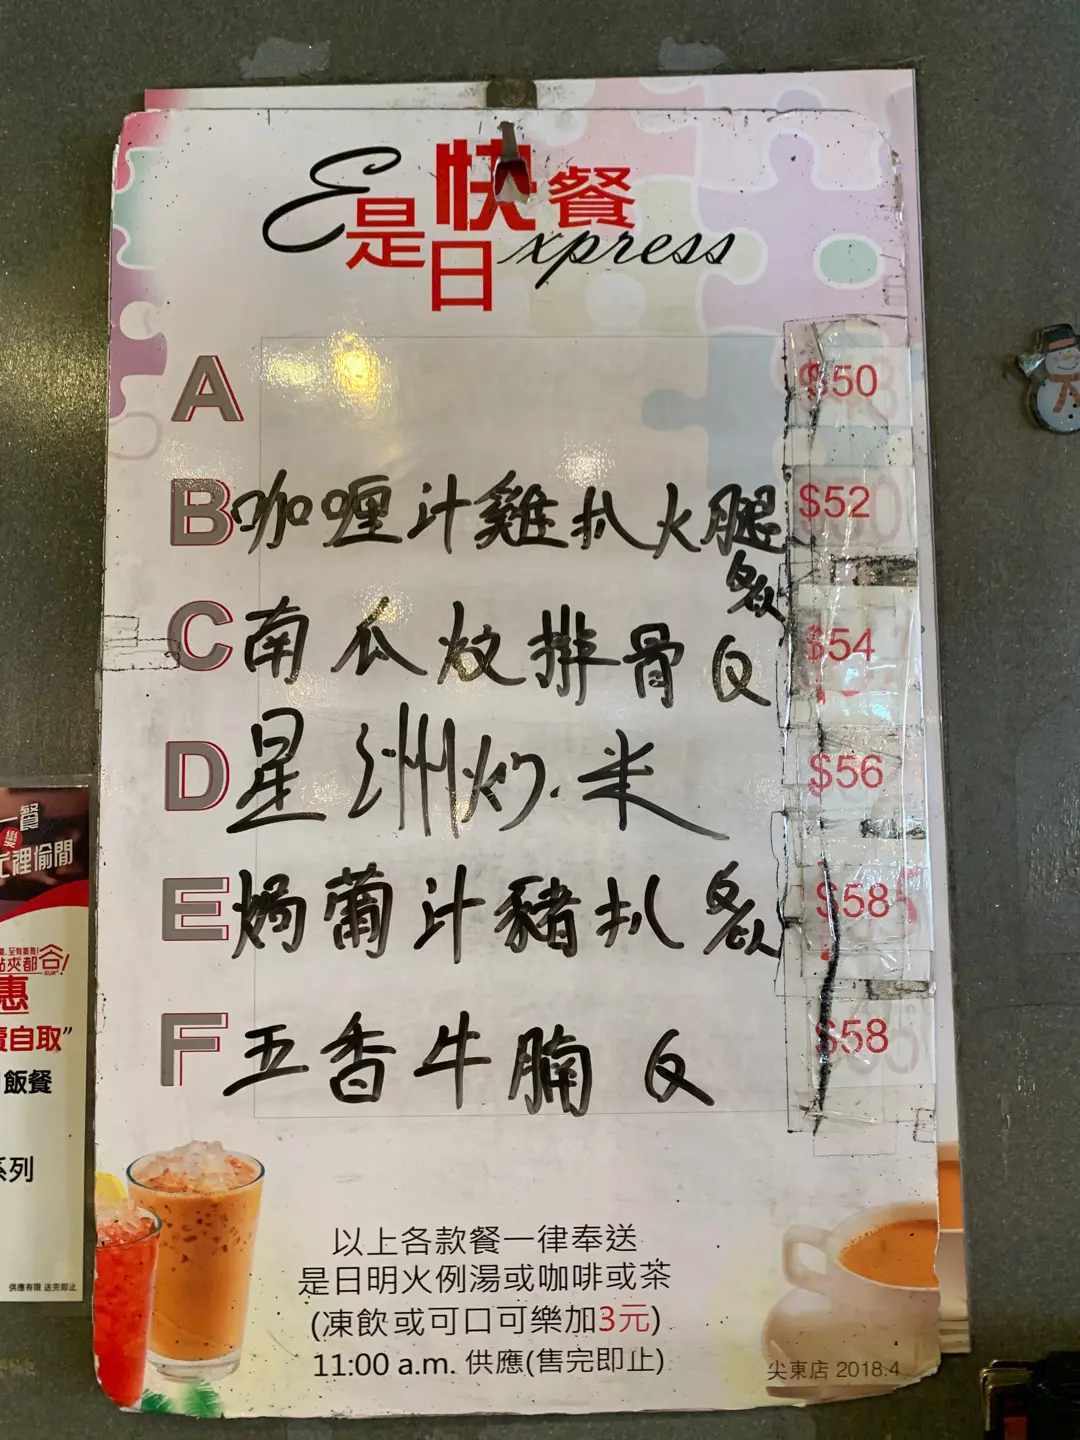 是日快餐
Express
A $50
B 咖喱汁雞扒火腿 $52
飯
C 南瓜炆排骨反 $54
D 星洲炒米 $56
E 焗葡汁豬扒飯 $58
F 五香牛腩反 $58
以上各款餐一律奉送
是日明火例湯或咖啡或茶
(凍飲或可口可樂加3元)
11:00 a.m. 供應(售完即止)
尖東店 2018.4
餐
樂
忙裡偷閒
點夾都啱!
惠
賣自取”
飯餐
系列
供應有限 送完即止